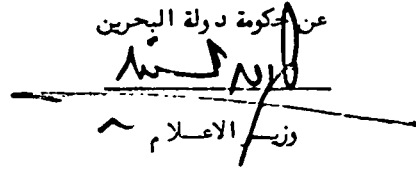 عن حكومة دولة البحرين
وزير الاعلام